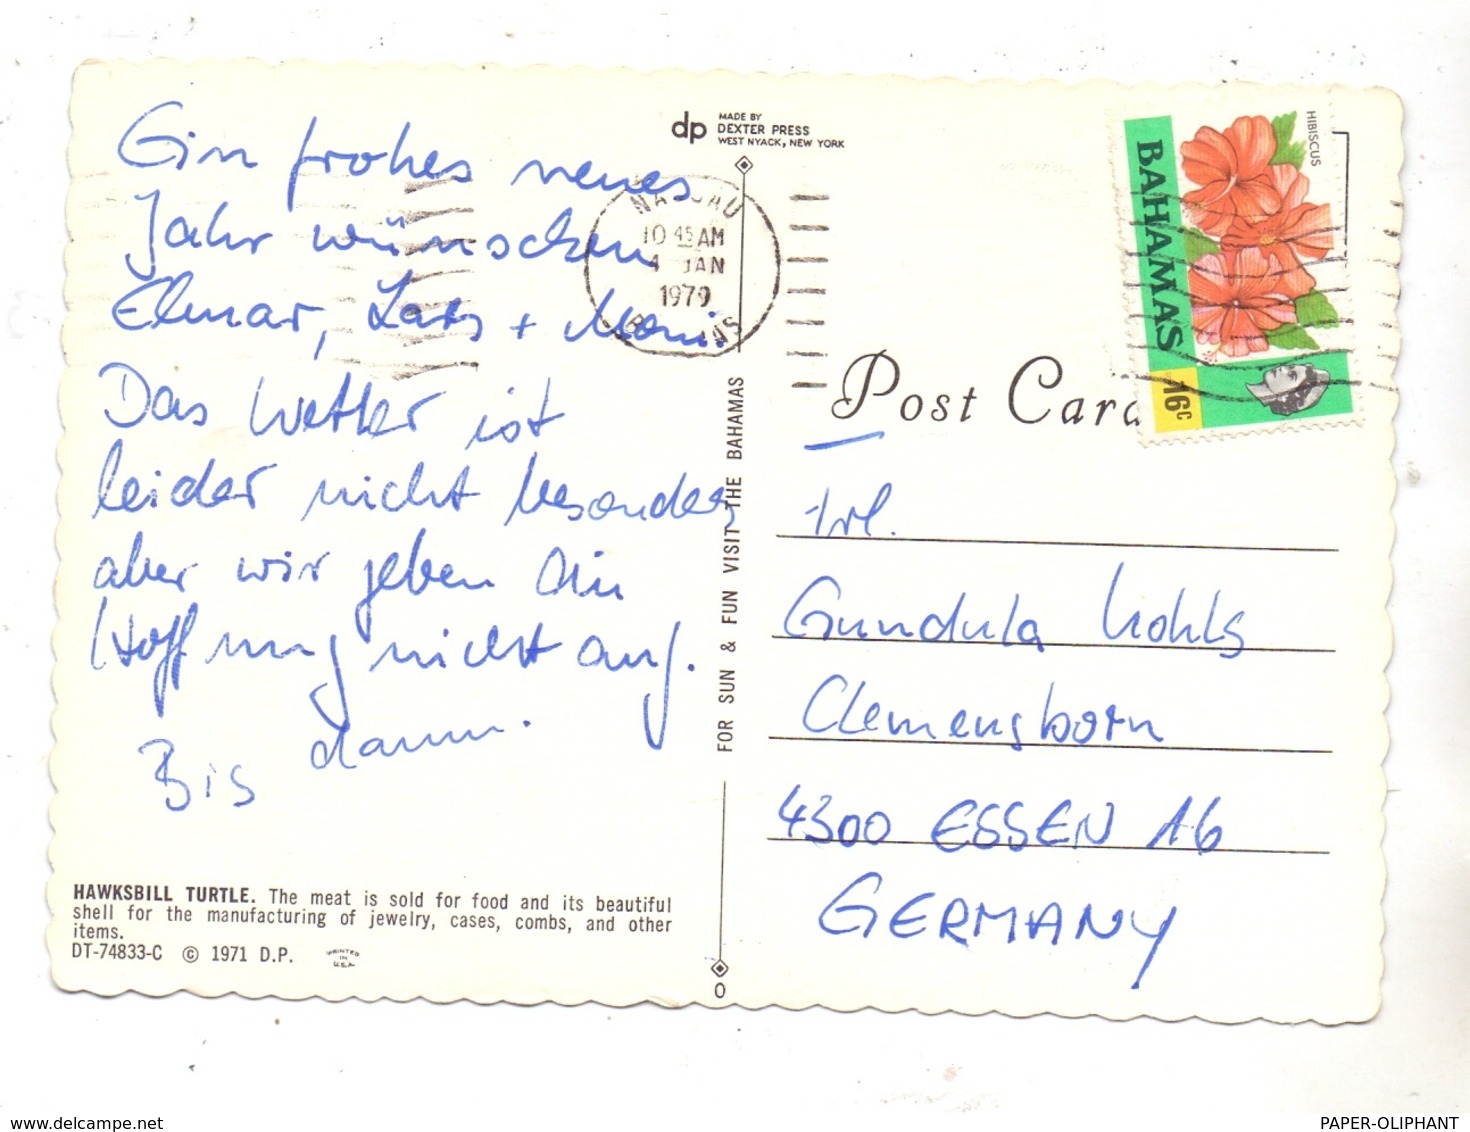 Ein frohes neues
Jahr wünschen
Elmar, Lars + Moni.
Das Wetter ist
leider nicht besonders
aber wir geben die
Hoffnung nicht auf.
Bis dann.
HAWKSBILL TURTLE. The meat is sold for food and its beautiful
shell for the manufacturing of jewelry, cases, combs, and other
items.
DT-74833-C © 1971 D.P.
PRINTED
IN
U.S.A.
dp
MADE BY
DEXTER PRESS
WEST NYACK, NEW YORK
NASSAU
10 45 AM
4 JAN
1979
BAHAMAS
FOR SUN & FUN VISIT THE BAHAMAS
0
HIBISCUS
BAHAMAS
16c
Post Card
Frl.
Gundula Kohls
Clemensborn
4300 ESSEN 16
GERMANY
www.delcampe.net
PAPER-OLIPHANT